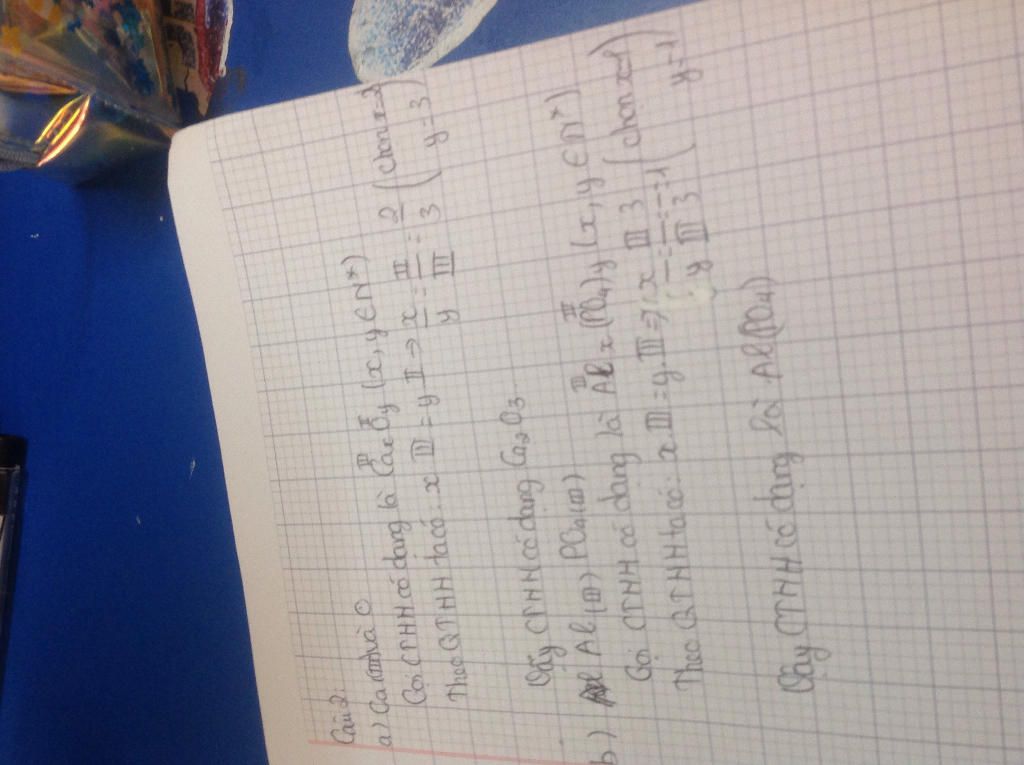 Câu 2:
a) Ca (III) và O
Gọi CTHH có dạng là CaxOy (x, y ∈ N*)
III II
Theo QTHH ta có: x III = y. II → x/y = II/III = 2/3 (chọn x=2
y=3)
Vậy CTHH có dạng Ca2O3.
b) Al (III) PO4 (III)
Gọi CTHH có dạng là Alx(PO4)y (x, y ∈ N*)
III III
Theo QTHH ta có: x III = y. III => x/y = III/III = 3/3 = 1/1 (chọn x=1
y=1)
Vậy CTHH có dạng là Al(PO4)